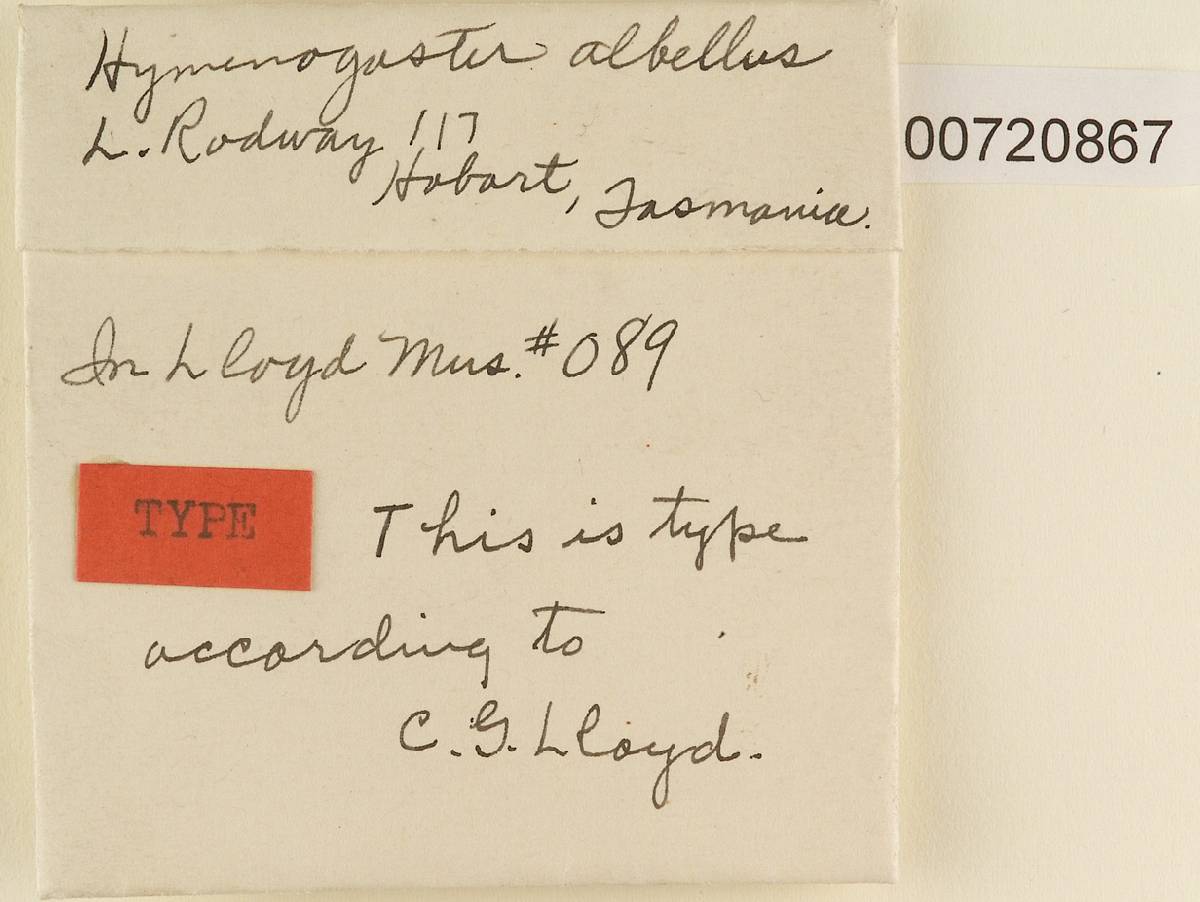 Hymenogaster albellus
L. Rodway 117
Hobart, Tasmania.
00720867
In Lloyd Mus. #089
TYPE
This is type
according to
C. G. Lloyd.